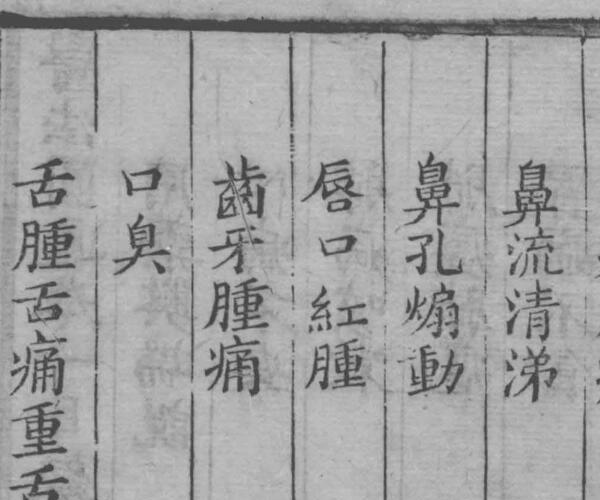 鼻流清涕
鼻孔煽動
唇口紅腫
齒牙腫痛
口臭
舌腫舌痛重舌